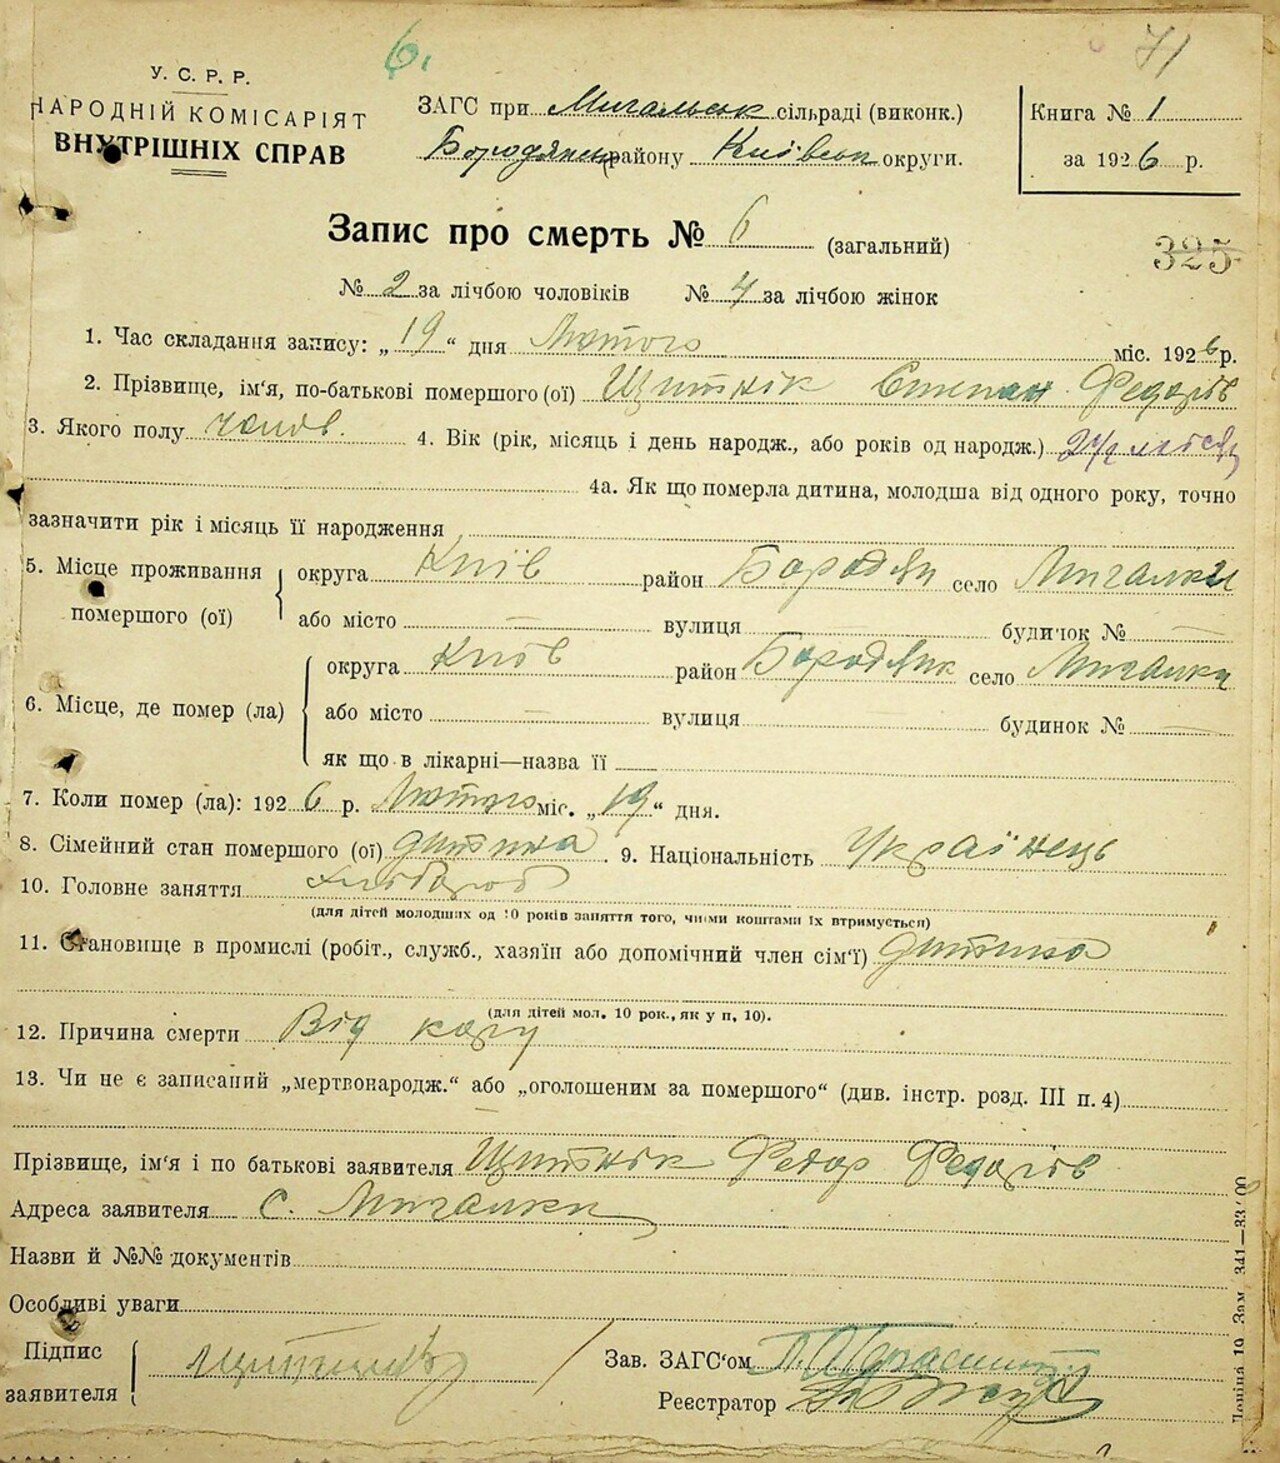 6.
71
У. С. Р. Р.
НАРОДНІЙ КОМІСАРІЯТ
ВНУТРІШНІХ СПРАВ
ЗАГС при Мигальськ сільраді (виконк.)
Бородянськ району Київськ округи.
Книга № 1
за 1926 р.
Запис про смерть № 6 (загальний)
325
№ 2 за лічбою чоловіків № 4 за лічбою жінок
1. Час складання запису: „19“ дня Лютого міс. 1926 р.
2. Прізвище, ім‘я, по-батькові помершого (ої) Щитнік Степан Федорів
3. Якого полу чолов. 4. Вік (рік, місяць і день народж., або років од народж.) 2½
4а. Як що померла дитина, молодша від одного року, точно
зазначити рік і місяць її народження
5. Місце проживання помершого (ої) округа Київ район Бородян село Мигалки
або місто — вулиця — будинок № —
6. Місце, де помер (ла) округа Київ район Бородянк село Мигалки
або місто — вулиця будинок № —
як що в лікарні—назва її
7. Коли помер (ла): 1926 р. Лютого міс. „19“ дня.
8. Сімейний стан помершого (ої) дитина. 9. Національність Українець
10. Головне заняття Хлібороб
(для дітей молодших од 10 років заняття того, чиїми коштами їх втримується)
11. Становище в промислі (робіт., служб., хазяїн або допомічний член сім‘ї) дитина
(для дітей мол. 10 рок., як у п, 10).
12. Причина смерти Від кору
13. Чи не є записаний „мертвонародж.“ або „оголошеним за помершого“ (див. інстр. розд. III п. 4)
—
Прізвище, ім‘я і по батькові заявителя Щитнік Федор Федорів
Адреса заявителя с. Мигалки
Назви й №№ документів
Особливі уваги
Підпис заявителя
Зав. ЗАГС‘ом
Реєстратор